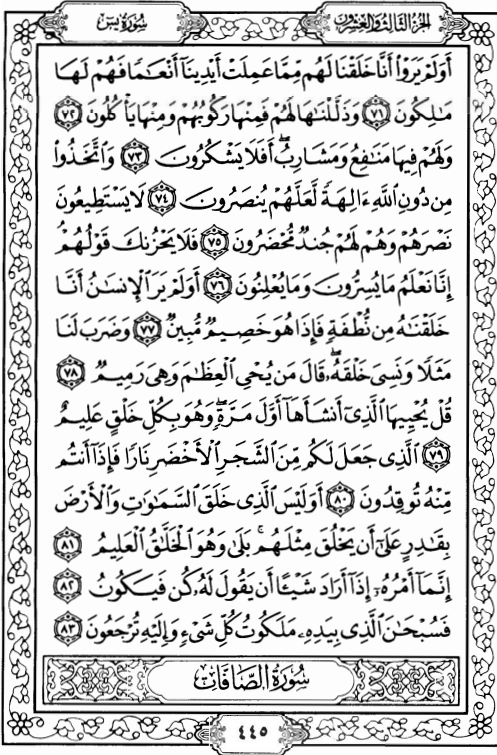 الجزء الثالث والعشرون
سورة يس
أَوَلَمْ يَرَوْا۟ أَنَّا خَلَقْنَا لَهُم مِّمَّا عَمِلَتْ أَيْدِينَآ أَنْعَٰمًا فَهُمْ لَهَا
مَٰلِكُونَ ٧١ وَذَلَّلْنَٰهَا لَهُمْ فَمِنْهَا رَكُوبُهُمْ وَمِنْهَا يَأْكُلُونَ ٧٢
وَلَهُمْ فِيهَا مَنَٰفِعُ وَمَشَارِبُ ۖ أَفَلَا يَشْكُرُونَ ٧٣ وَٱتَّخَذُوا۟
مِن دُونِ ٱللَّهِ ءَالِهَةً لَّعَلَّهُمْ يُنصَرُونَ ٧٤ لَا يَسْتَطِيعُونَ
نَصْرَهُمْ وَهُمْ لَهُمْ جُندٌ مُّحْضَرُونَ ٧٥ فَلَا يَحْزُنكَ قَوْلُهُمْ ۘ
إِنَّا نَعْلَمُ مَا يُسِرُّونَ وَمَا يُعْلِنُونَ ٧٦ أَوَلَمْ يَرَ ٱلْإِنسَٰنُ أَنَّا
خَلَقْنَٰهُ مِن نُّطْفَةٍ فَإِذَا هُوَ خَصِيمٌ مُّبِينٌ ٧٧ وَضَرَبَ لَنَا
مَثَلًا وَنَسِىَ خَلْقَهُۥ ۖ قَالَ مَن يُحْىِ ٱلْعِظَٰمَ وَهِىَ رَمِيمٌ ٧٨
قُلْ يُحْيِيهَا ٱلَّذِىٓ أَنشَأَهَآ أَوَّلَ مَرَّةٍ ۖ وَهُوَ بِكُلِّ خَلْقٍ عَلِيمٌ
٧٩ ٱلَّذِى جَعَلَ لَكُم مِّنَ ٱلشَّجَرِ ٱلْأَخْضَرِ نَارًا فَإِذَآ أَنتُم
مِّنْهُ تُوقِدُونَ ٨٠ أَوَلَيْسَ ٱلَّذِى خَلَقَ ٱلسَّمَٰوَٰتِ وَٱلْأَرْضَ
بِقَٰدِرٍ عَلَىٰٓ أَن يَخْلُقَ مِثْلَهُم ۚ بَلَىٰ وَهُوَ ٱلْخَلَّٰقُ ٱلْعَلِيمُ ٨١
إِنَّمَآ أَمْرُهُۥٓ إِذَآ أَرَادَ شَيْـًٔا أَن يَقُولَ لَهُۥ كُن فَيَكُونُ ٨٢
فَسُبْحَٰنَ ٱلَّذِى بِيَدِهِۦ مَلَكُوتُ كُلِّ شَىْءٍ وَإِلَيْهِ تُرْجَعُونَ ٨٣
سُورَةُ الصَّافَّات
٤٤٥